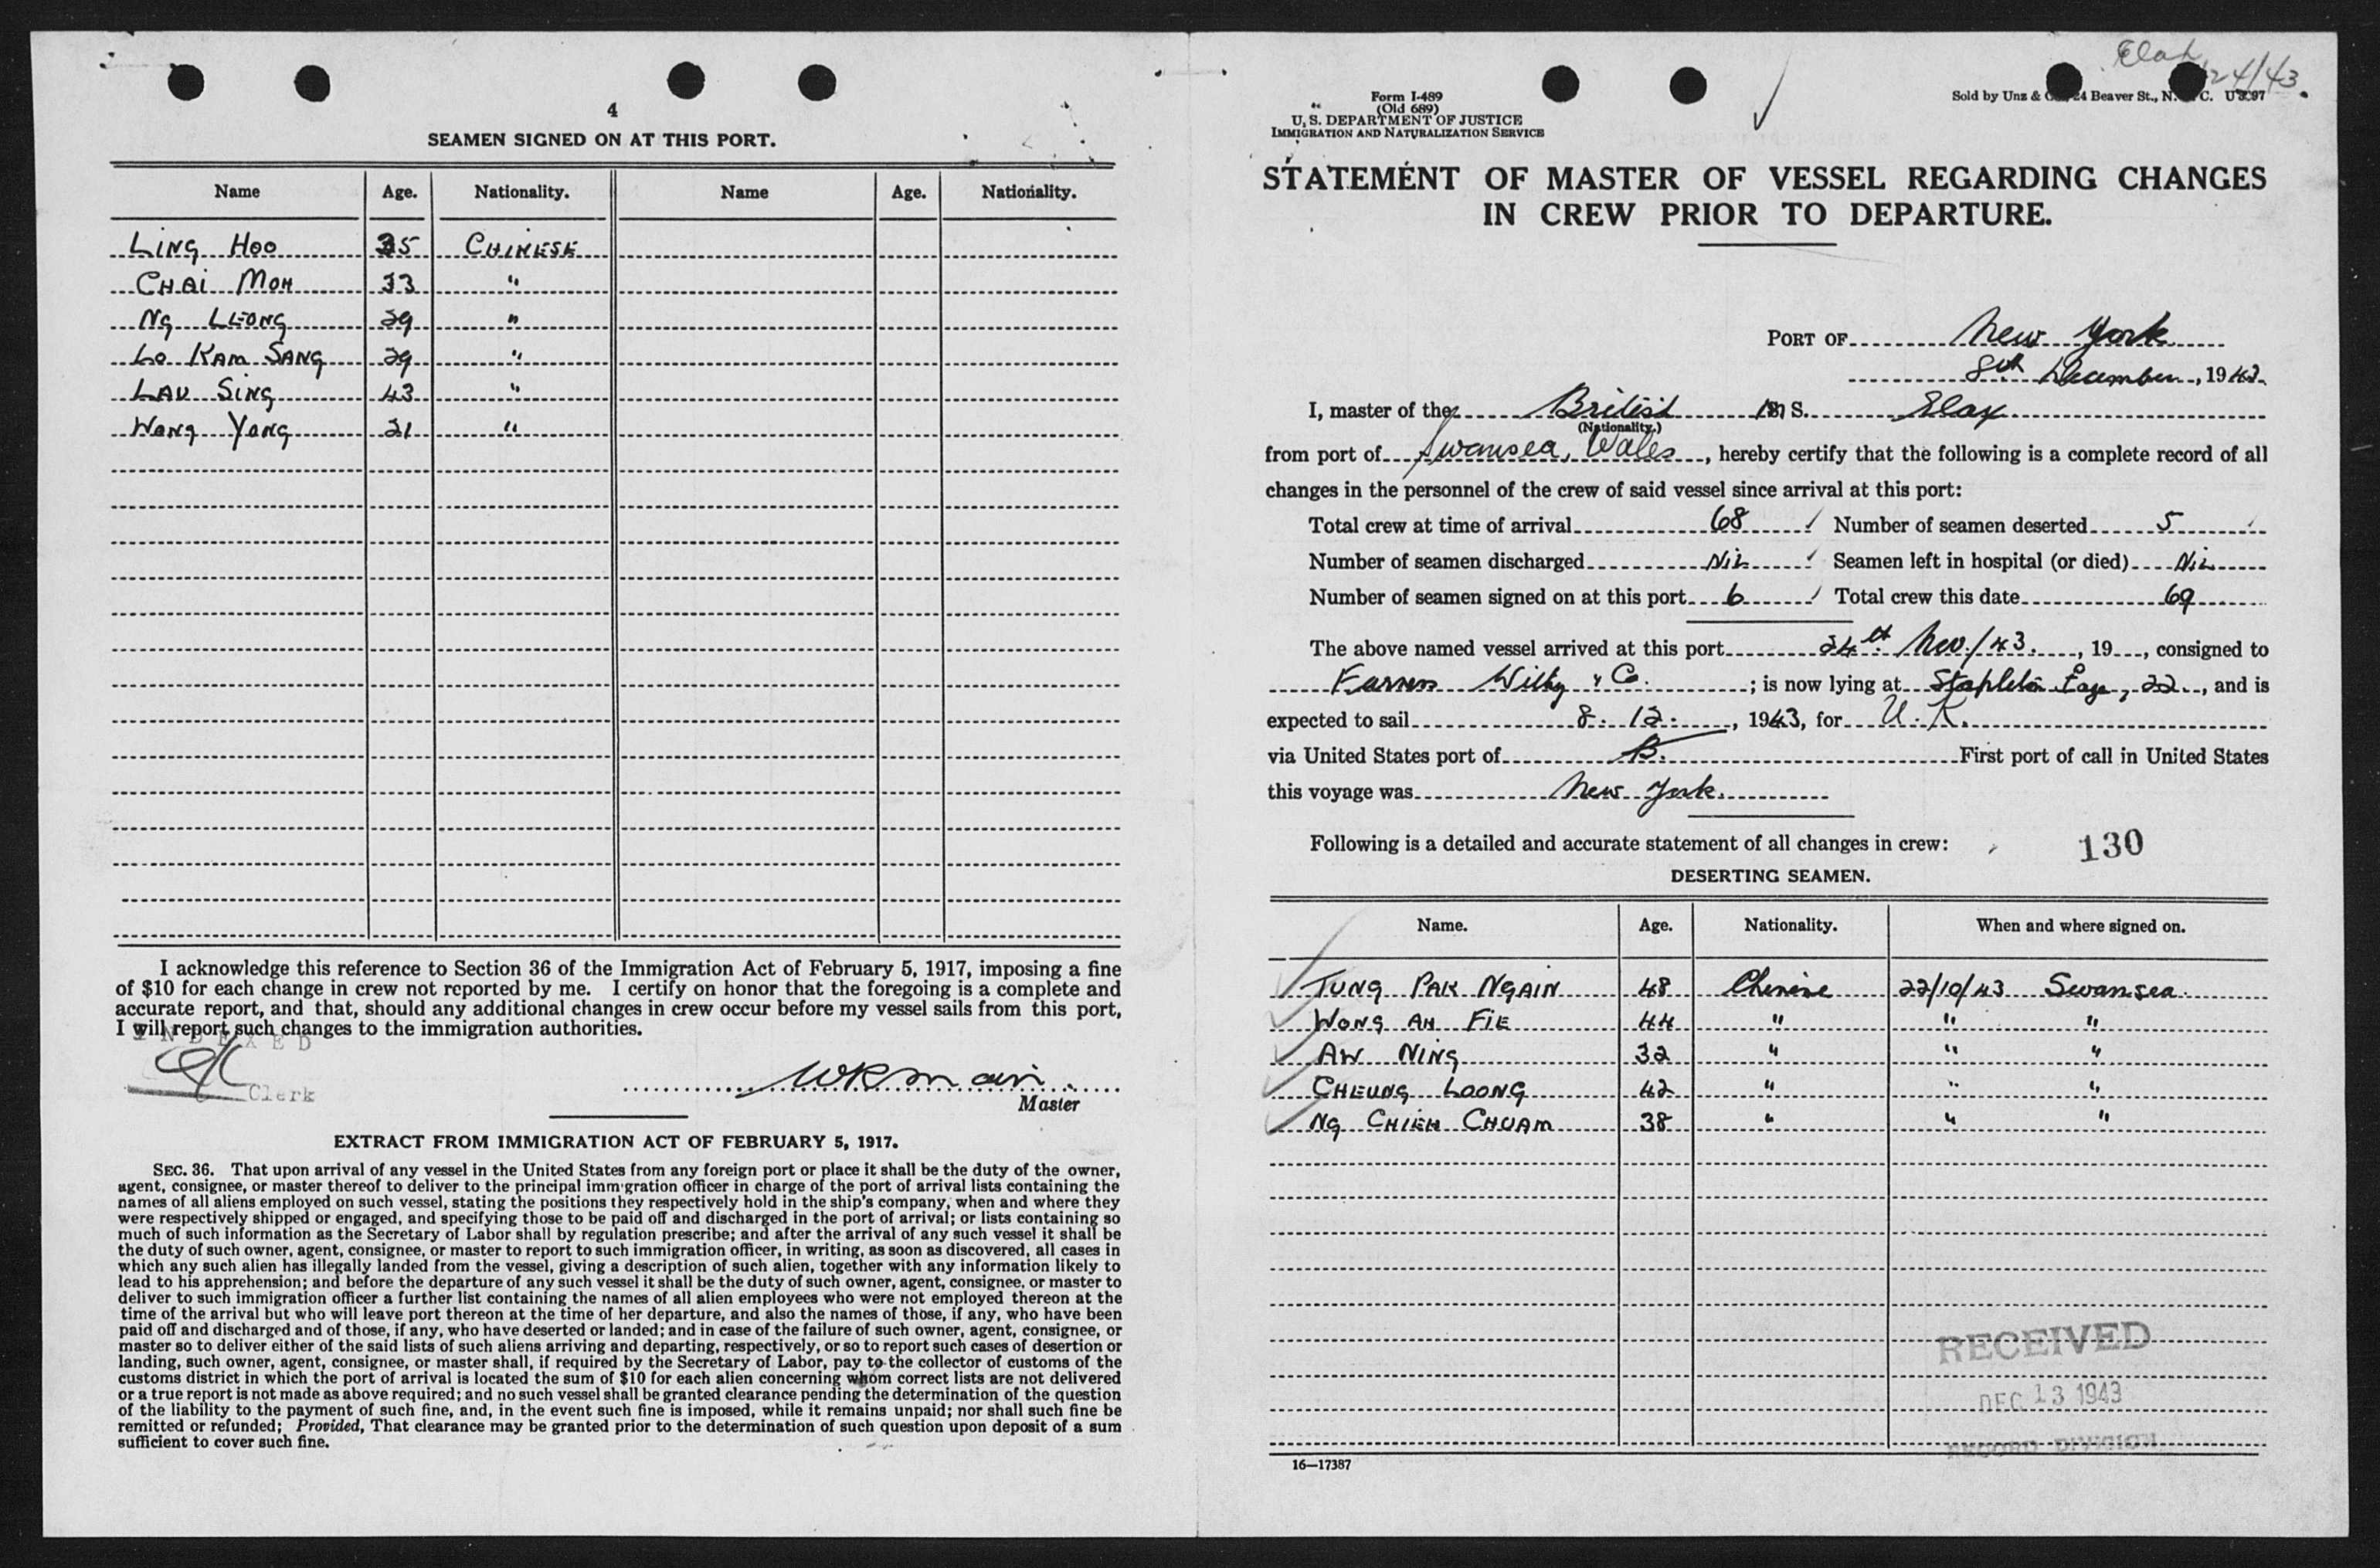 4
SEAMEN SIGNED ON AT THIS PORT.
Name Age. Nationality. Name Age. Nationality.
LING HOO 35 CHINESE
CHAI MOH 33 "
NG LEONG 29 "
LO KAM SANG 29 "
LAU SING 43 "
WONG YONG 21 "
I acknowledge this reference to Section 36 of the Immigration Act of February 5, 1917, imposing a fine
of $10 for each change in crew not reported by me. I certify on honor that the foregoing is a complete and
accurate report, and that, should any additional changes in crew occur before my vessel sails from this port,
I will report such changes to the immigration authorities.
INDEXED
Clerk
WRMain
Master
EXTRACT FROM IMMIGRATION ACT OF FEBRUARY 5, 1917.
SEC. 36. That upon arrival of any vessel in the United States from any foreign port or place it shall be the duty of the owner,
agent, consignee, or master thereof to deliver to the principal immigration officer in charge of the port of arrival lists containing the
names of all aliens employed on such vessel, stating the positions they respectively hold in the ship's company, when and where they
were respectively shipped or engaged, and specifying those to be paid off and discharged in the port of arrival; or lists containing so
much of such information as the Secretary of Labor shall by regulation prescribe; and after the arrival of any such vessel it shall be
the duty of such owner, agent, consignee, or master to report to such immigration officer, in writing, as soon as discovered, all cases in
which any such alien has illegally landed from the vessel, giving a description of such alien, together with any information likely to
lead to his apprehension; and before the departure of any such vessel it shall be the duty of such owner, agent, consignee, or master to
deliver to such immigration officer a further list containing the names of all alien employees who were not employed thereon at the
time of the arrival but who will leave port thereon at the time of her departure, and also the names of those, if any, who have been
paid off and discharged and of those, if any, who have deserted or landed; and in case of the failure of such owner, agent, consignee, or
master so to deliver either of the said lists of such aliens arriving and departing, respectively, or so to report such cases of desertion or
landing, such owner, agent, consignee, or master shall, if required by the Secretary of Labor, pay to the collector of customs of the
customs district in which the port of arrival is located the sum of $10 for each alien concerning whom correct lists are not delivered
or a true report is not made as above required; and no such vessel shall be granted clearance pending the determination of the question
of the liability to the payment of such fine, and, in the event such fine is imposed, while it remains unpaid; nor shall such fine be
remitted or refunded; Provided, That clearance may be granted prior to the determination of such question upon deposit of a sum
sufficient to cover such fine.
Elax 24/43.
Form I-489
(Old 689)
U. S. DEPARTMENT OF JUSTICE
IMMIGRATION AND NATURALIZATION SERVICE
Sold by Unz & Beaver St., N. C.
STATEMENT OF MASTER OF VESSEL REGARDING CHANGES
IN CREW PRIOR TO DEPARTURE.
PORT OF New York
8th December, 1943.
I, master of the British S. Elax
(Nationality.)
from port of Swansea, Wales, hereby certify that the following is a complete record of all
changes in the personnel of the crew of said vessel since arrival at this port:
Total crew at time of arrival 68 Number of seamen deserted 5
Number of seamen discharged Nil Seamen left in hospital (or died) Nil
Number of seamen signed on at this port 6 Total crew this date 69
The above named vessel arrived at this port 24th Nov/43., 19 , consigned to
Furness Withy & Co.; is now lying at Stapleton 22, and is
expected to sail 8. 12., 1943, for U. K.
via United States port of First port of call in United States
this voyage was New York.
Following is a detailed and accurate statement of all changes in crew:
130
DESERTING SEAMEN.
Name. Age. Nationality. When and where signed on.
TUNG PAK NGAIN 48 Chinese 22/10/43 Swansea.
WONG AH FIE 44 " " "
AW NING 32 " " "
CHEUNG LOONG 42 " " "
NG CHIEH CHUAM 38 " " "
RECEIVED
DEC 13 1943
RECORD DIVISION
16—17387